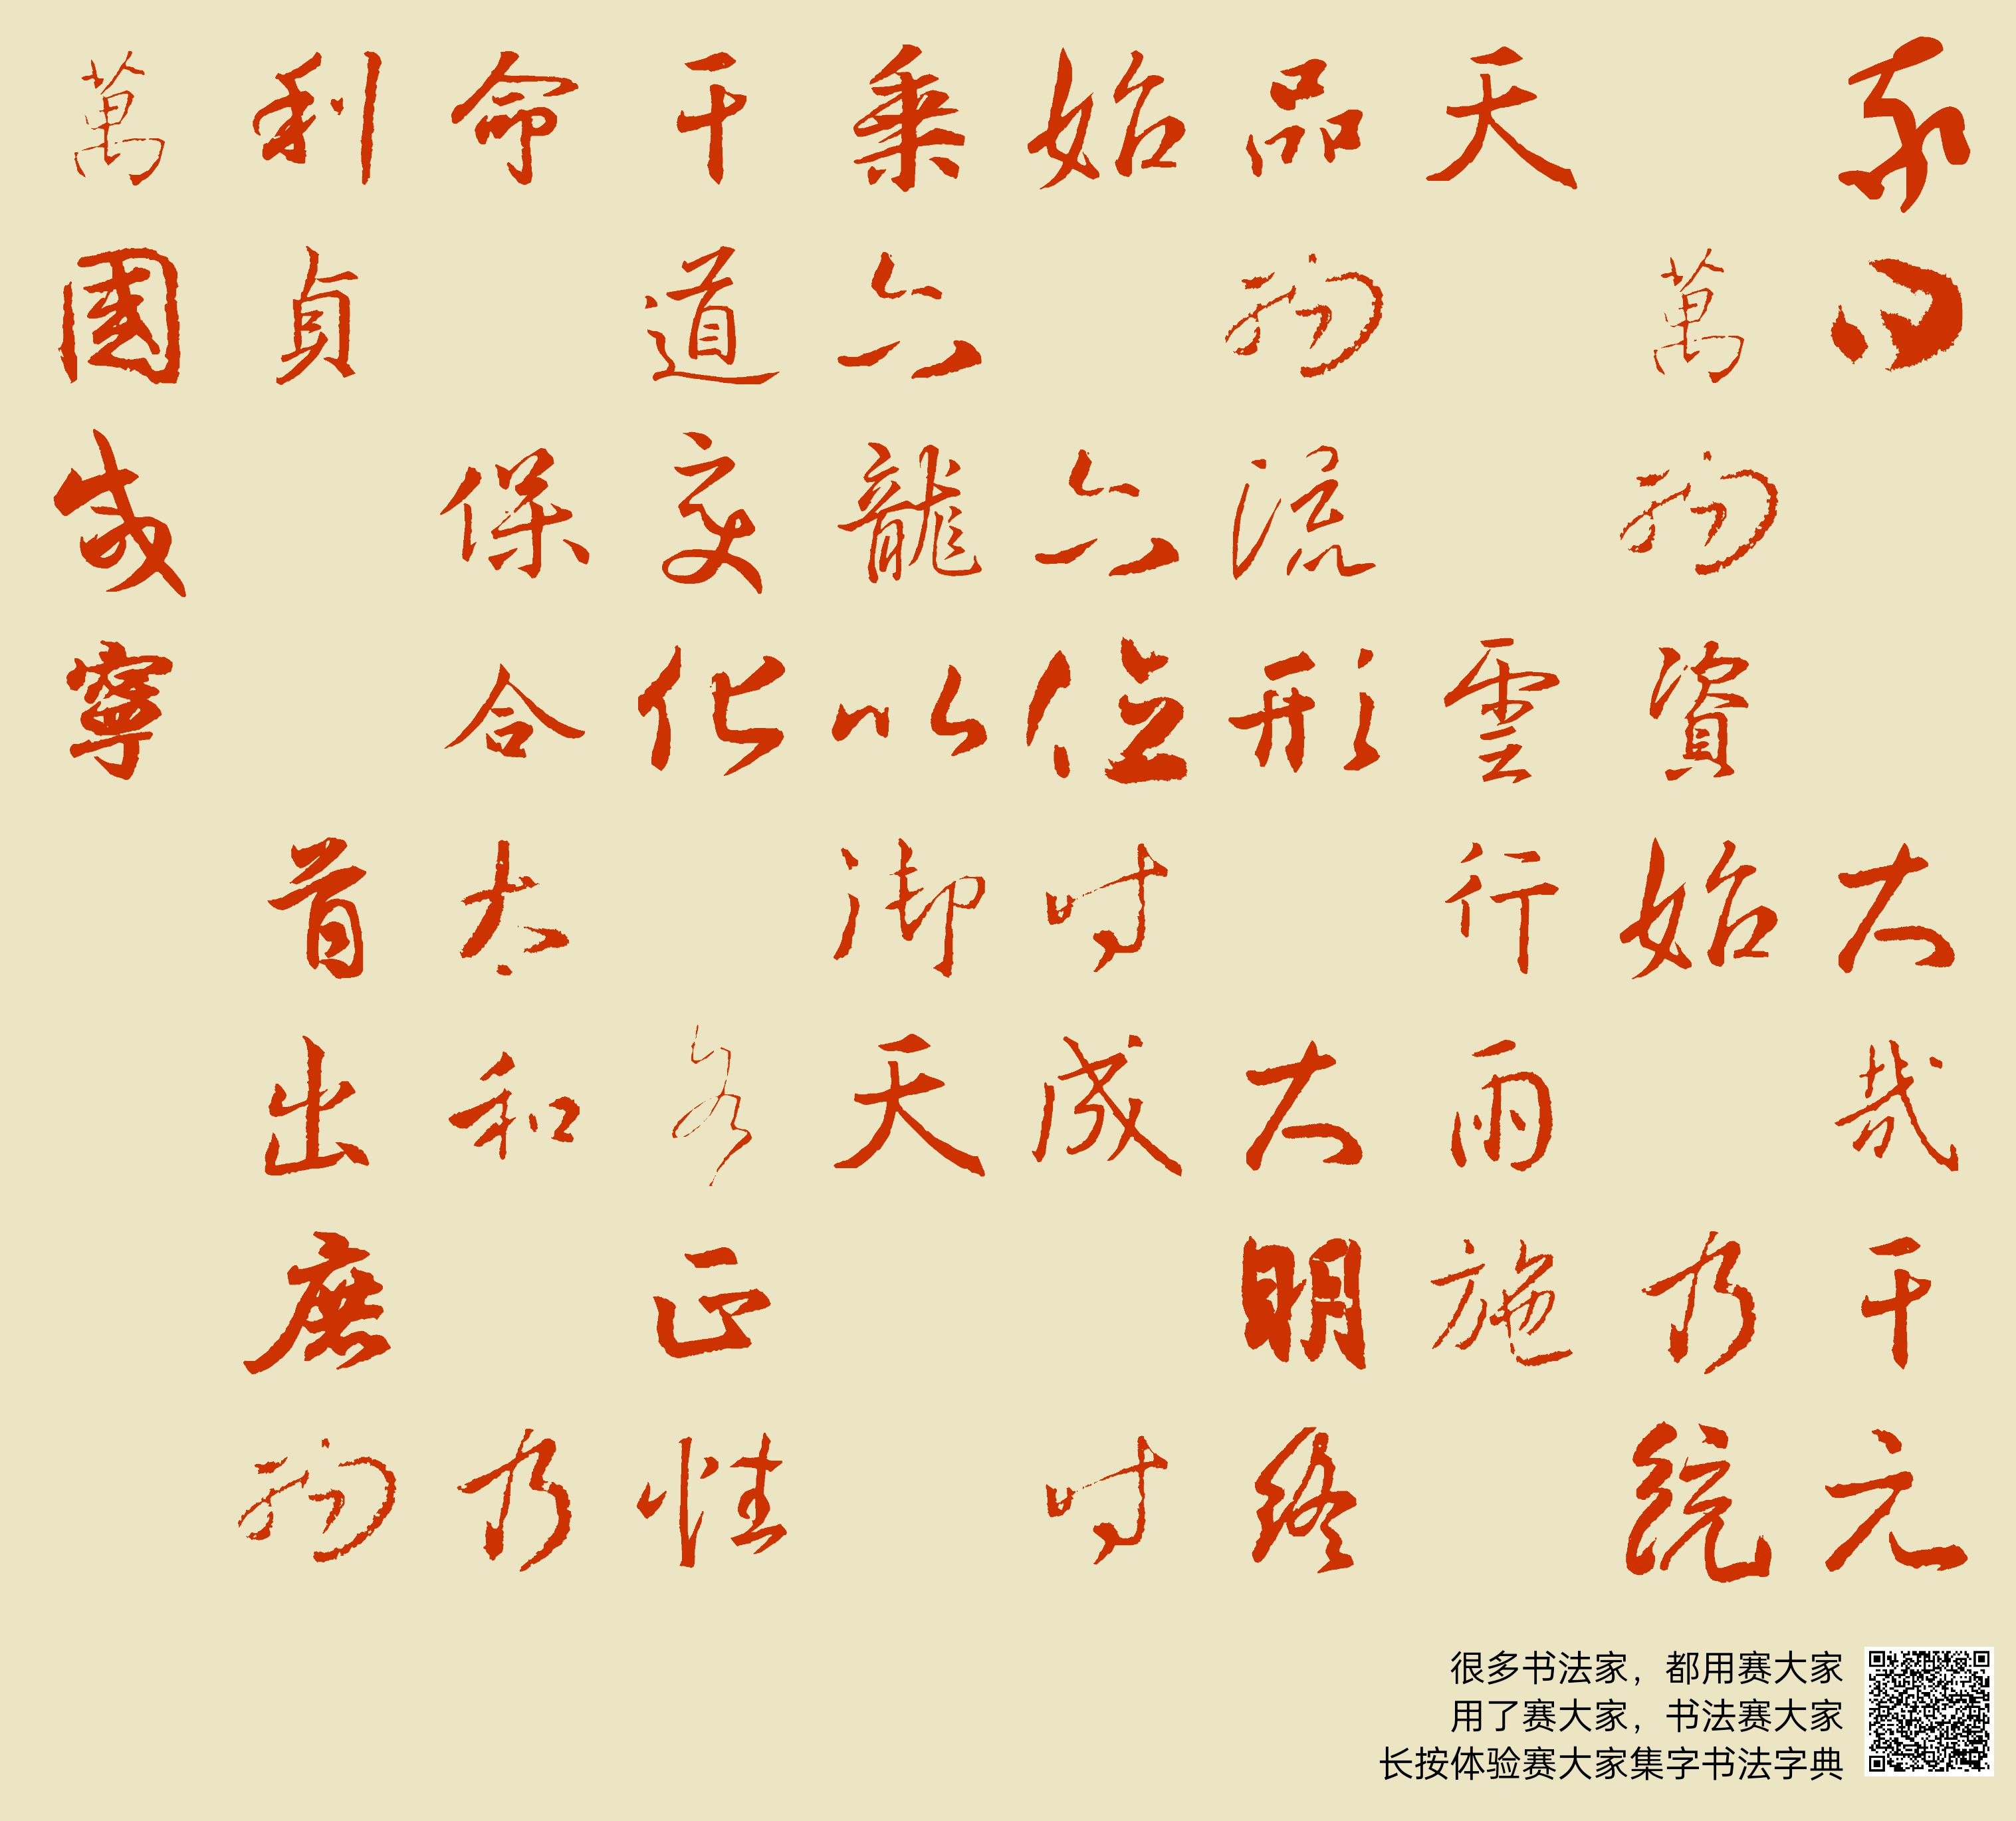 彖曰 大哉干元
萬物資始 乃統
天 雲行雨施
品物流形 大明終
始 六位时成 时
乘六龍以御天
干道变化 各正性
命 保合太和 乃
利貞 首出庶物
萬國咸寧
很多书法家，都用赛大家
用了赛大家，书法赛大家
长按体验赛大家集字书法字典